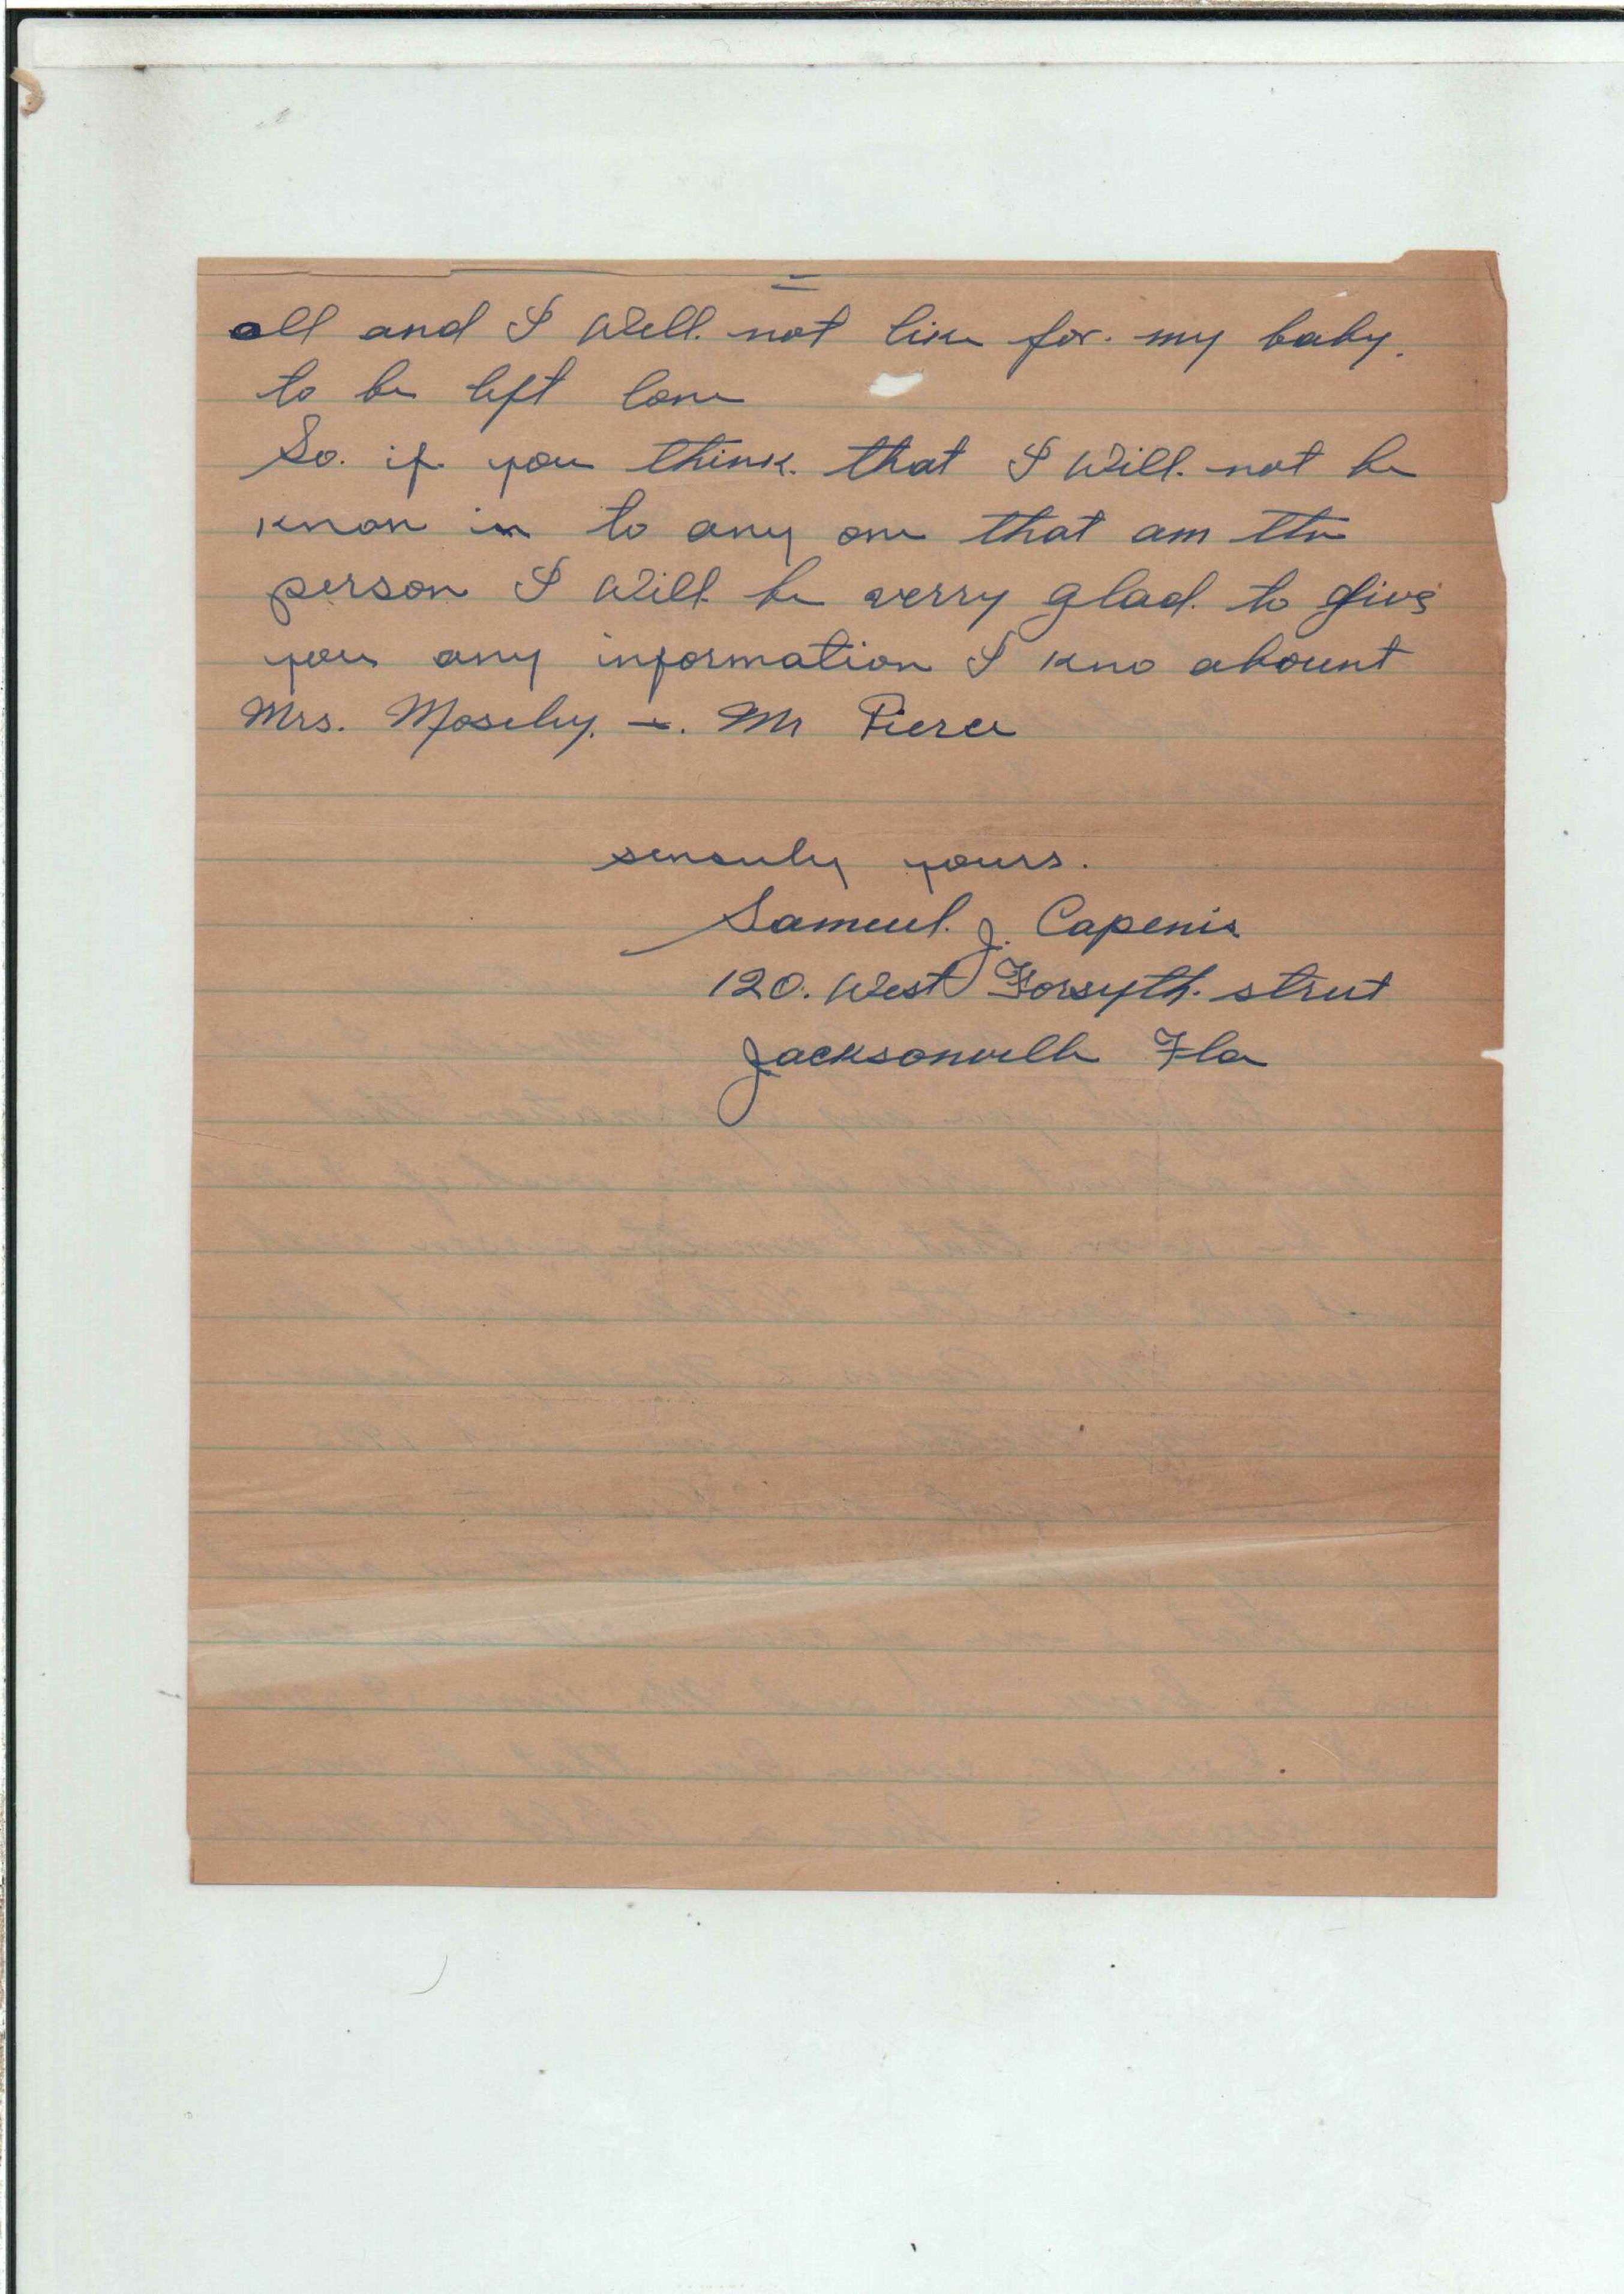 all and I Well. not like for. my baby.
to be left lone
So. if you think. that I Will. not be
known in to any one that am the
person I Will be verry glad. to give
you any information I kno abount
Mrs. Moseley. +. Mr Pierce
senсuly yours.
Samuel. J. Capenis
120. West Forsyth. street
Jacksonville Fla